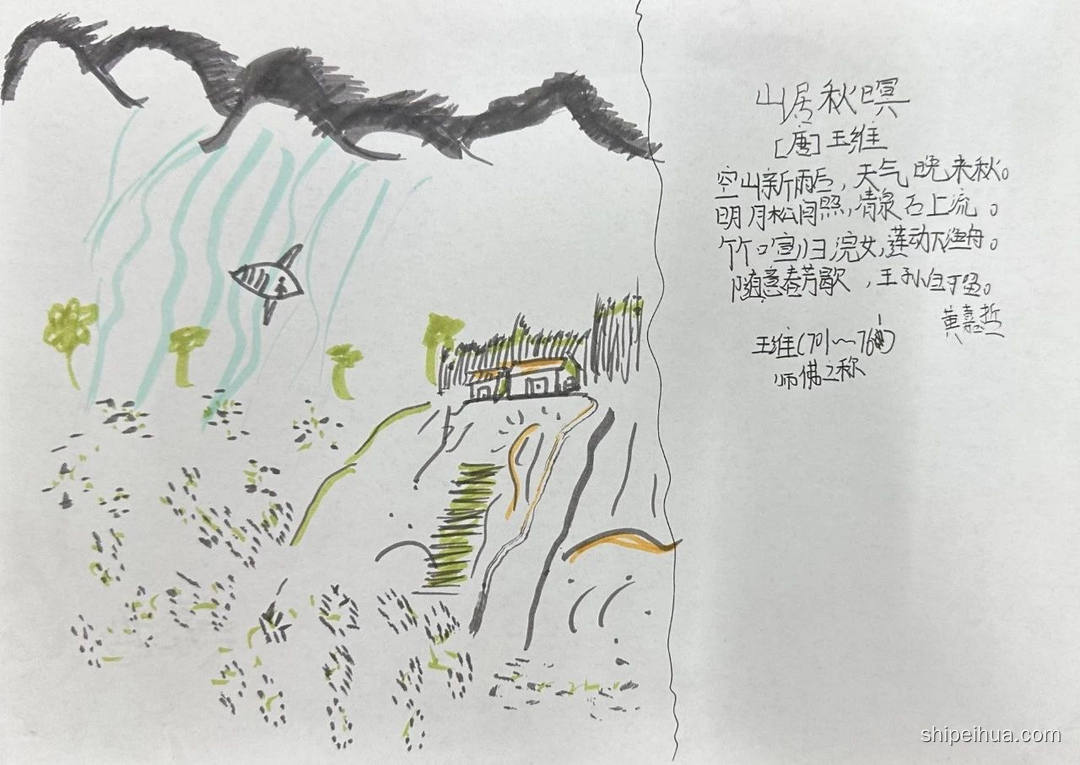 山居秋暝
[唐]王维
空山新雨后，天气晚来秋。
明月松间照，清泉石上流。
竹喧归浣女，莲动下渔舟。
随意春芳歇，王孙自可留。
黄嘉哲
王维(701～761)
师佛之称
shipeihua.com